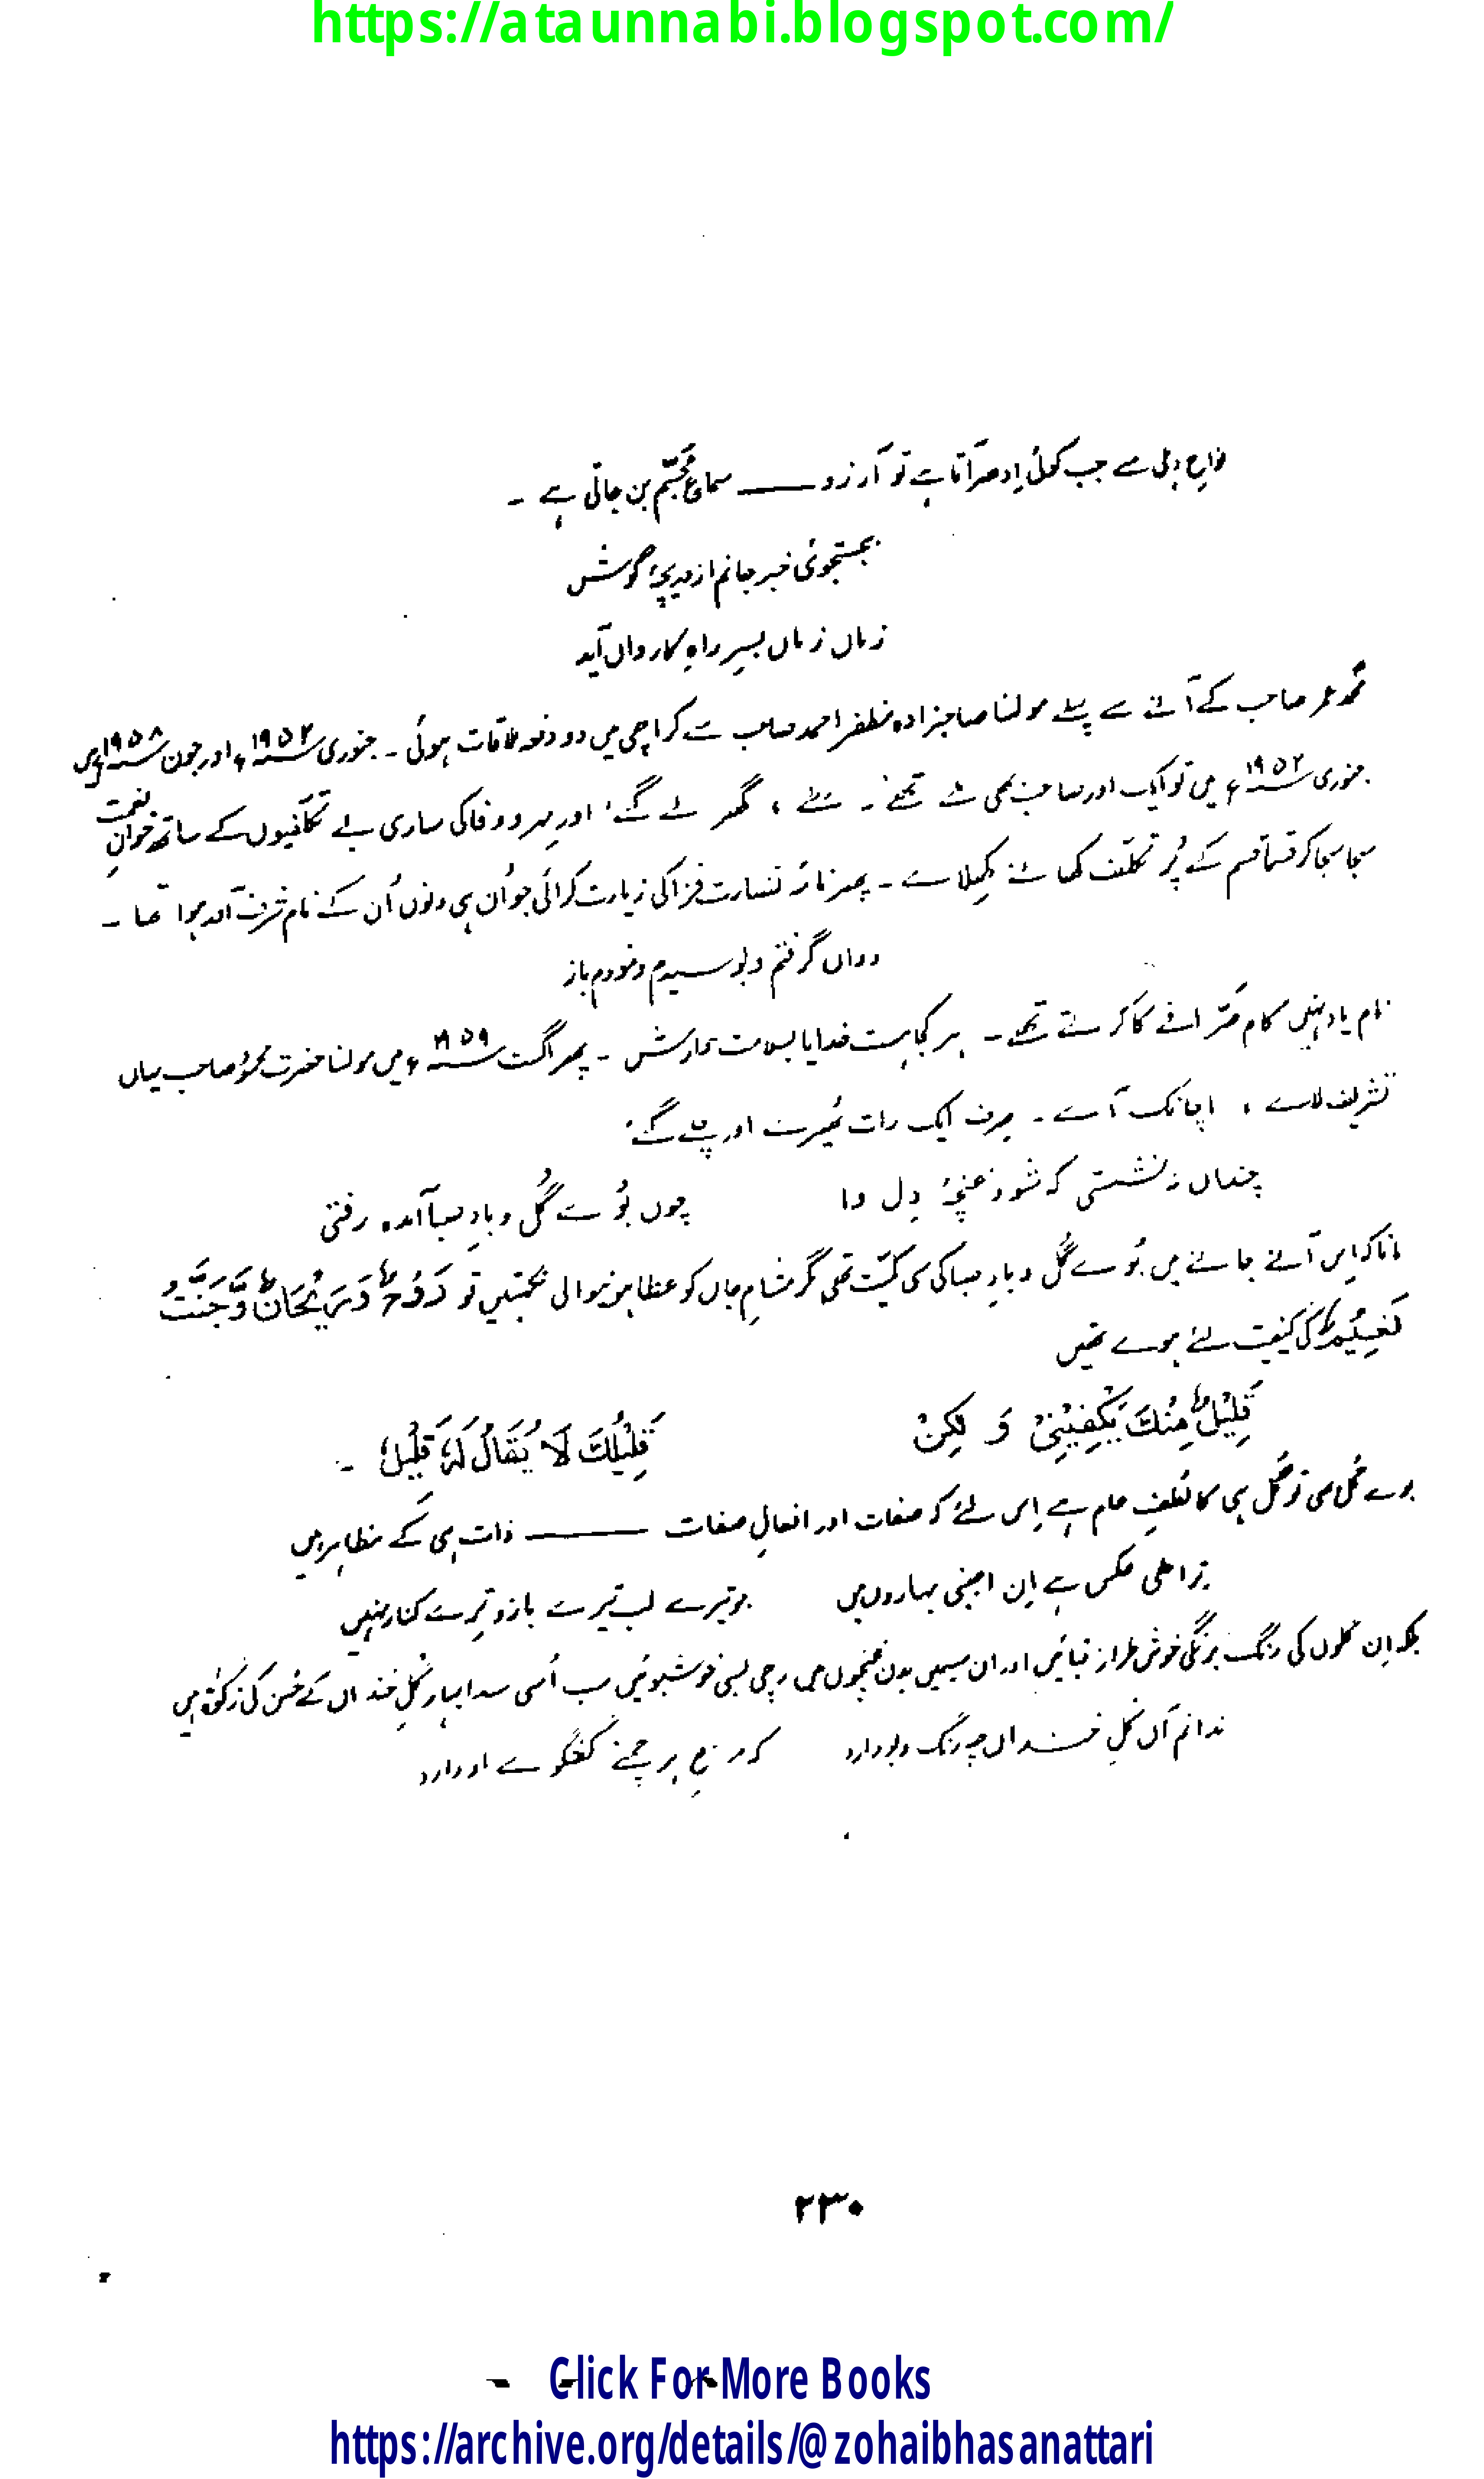 https://ataunnabi.blogspot.com/
نواحِ دہلی سے جب کوئی اِدھر آتا ہے تو آرزو —— سماعِ مُجسّم بن جاتی ہے ۔
بجستجوئی خبر جانم از دریچۂ گوش
زماں زماں بسرِ راہِ کارواں آید
محمد عمر صاحب کے آنے سے پہلے مولٰنا صاحبزادہ مظفر احمد صاحب سے کراچی میں دو دفعہ ملاقات ہوئی ۔ جنوری ۱۹۵۲ء اور جون ۱۹۵۸ء میں
جنوری ۱۹۵۲ء میں تو ایک اور صاحب بھی تھے ۔ ملے ، گھر لے گئے ، اور مہر و وفا کی ساری بے تکلّفیوں کے ساتھ خوانِ نعمت
سجا سجا کر قسما قسم کے پُر تکلّف کھانے کھلائے ۔ پھر نامۂ نضارت فزا کی زیارت کرائی جو اُن ہی دنوں اُن کے نام شرف آمد ہوا تھا ۔
رواں گرفتم و بوسیدم و نمودم باز
نام یاد نہیں کام صرّافے کا کرتے تھے ۔ ہر کجا ہست خدایا بسلامت دارش ۔ پھر اگست ۱۹۵۹ء میں مولٰنا حضرت محمود صاحب یہاں
تشریف لائے ، اچانک آئے ۔ صرف ایک رات ٹھیرے اور چلے گئے ،
چنداں نہ نشستی کہ شود غنچۂ دِل وا چوں بُوئے گُل و بادِ صبا آمدہ رفتی
مانا کہ اِس آنے جانے میں بُوئے گُل و بادِ صبا کی سی کیّت تھی مگر مشامِ جاں کو عطا ہونیوالی نکہتیں تو رَوْحٌ وَّرَیْحَانٌ وَّجَنَّتُ
نَعِیْمٌ کی کیفیت لئے ہوئے تھیں
قَلِیْلٌ مِنْكَ یَکْفِیْنِیْ وَ لٰکِنْ قَلِیْلُكَ لَا یُقَالُ لَہٗ قَلِیْلٌ ۔
بوئے گُل بھی تو گُل ہی کا لُطفِ عام ہے اِس لئے کہ صفات اور افعالِ صفات —— ذات ہی کے مظاہر ہیں
ترا ہی عکس ہے اِن اجنبی بہاروں میں جو تیرے لب تیرے بازو تیرے کنار نہیں
بلکہ اِن گلوں کی رنگ برنگی خوش طراز قبائیں اور ان سیمیں بدن غنچوں میں رچی بسی خوشبوئیں سب اُسی سدا بہار گُلِ خنداں کے حُسن کی زکوٰۃ ہیں
ندانم آں گُلِ خنداں چہ رنگ و بو دارد کہ مرغِ ہر چمنے گفتگوئے او دارد
۲۳۰
Click For More Books
https://archive.org/details/@zohaibhasanattari